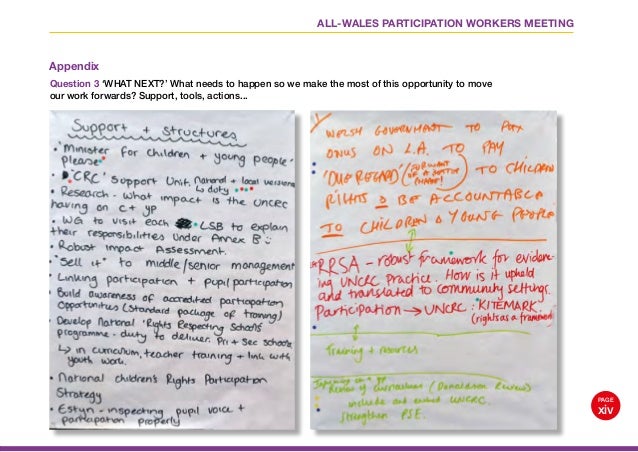 ALL-WALES PARTICIPATION WORKERS MEETING
Appendix
Question 3 ‘WHAT NEXT?’ What needs to happen so we make the most of this opportunity to move
our work forwards? Support, tools, actions...
Support + structures
• 'Minister for children + young people'
please
• 'CRC' Support Unit. National + local versions
↳ duty
• Research - what impact is the UNCRC
having on c + yp
• WG to visit each LSB to explain
their responsibilities under Annex B
• Robust Impact Assessment.
• "Sell it" to middle/senior management
• Linking participation + pupil participation
• Build awareness of accredited participation
opportunities (Standard package of training)
• Develop National 'Rights Respecting Schools'
programme - duty to deliver. Pri + Sec Schools
↳ in curriculum, teacher training + link with
youth work.
• National Children's Rights Participation
Strategy
• Estyn - inspecting pupil voice +
participation properly
WELSH GOVERNMENT TO PUT
ONUS ON L.A. TO PAY
'DUE REGARD' (FOR WANT
OF A BETTER
PHRASE!) TO CHILDREN
RIGHTS & BE ACCOUNTABLE
TO CHILDREN & YOUNG PEOPLE
RRSA - robust framework for evidenc-
ing UNCRC practice. How is it upheld
and translated to community settings.
Participation → UNCRC : KITEMARK
(rights as a framework)
Training + resources
Review of curriculum (Donaldson Review)
include and embed UNCRC.
Strengthen PSE.
PAGE
xiv